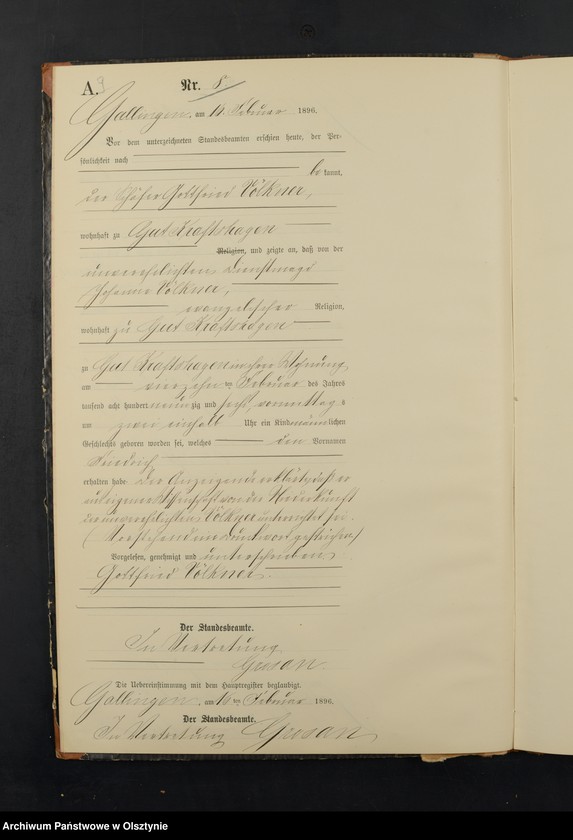 A. 9
Nr. 8.
Gallingen, am 16. Februar 1896.
Vor dem unterzeichneten Standesbeamten erschien heute, der Per-
sönlichkeit nach
be kannt,
der Schäfer Gottfried Völkner,
wohnhaft zu Gut Kraftshagen
Religion, und zeigte an, daß von der
unverehelichten Dienstmagd
Johanne Völkner,
evangelischer Religion,
wohnhaft zu Gut Kraftshagen
zu Gut Kraftshagen in ihrer Wohnung
am vierzehn ten Februar des Jahres
tausend acht hundert neunzig und sechs, vormittags
um zwei einhalb Uhr ein Kind männlichen
Geschlechts geboren worden sei, welches den Vornamen
Friedrich
erhalten habe. Der Anzeigende erklärt, daß er
aus eigener Wissenschaft von der Niederkunft
der unverehelichten Völkner unterrichtet sei.
(Vorstehend ein Druckwort gestrichen)
Vorgelesen, genehmigt und unterschrieben
Gottfried Völkner.
Der Standesbeamte.
In Vertretung
Die Uebereinstimmung mit dem Hauptregister beglaubigt.
Gallingen, am 16 ten Februar 1896.
Der Standesbeamte.
In Vertretung
Archiwum Państwowe w Olsztynie